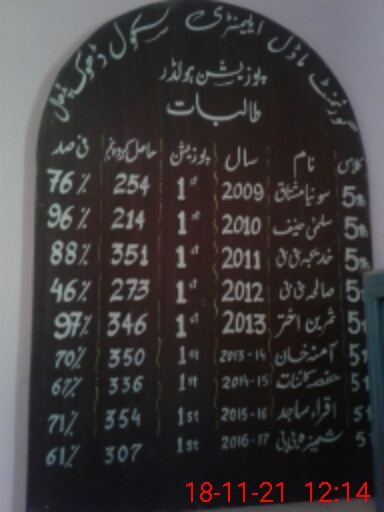 گورنمنٹ ماڈل ایلیمنٹری سکول ڈھوک
پوزیشن ہولڈر
طالبات
کلاس نام سال پوزیشن حاصل کردہ نمبر فی صد
5th سونیا مشتاق 2009 1st 254 76%
5th سلمیٰ حنیف 2010 1st 214 96%
5th خدیجہ بی بی 2011 1st 351 88%
5th صالحہ بی بی 2012 1st 273 46%
5t ثمرین اختر 2013 1st 346 97%
5t آمنہ خان 2013-14 1st 350 70%
5t حفصہ کائنات 2014-15 1st 336 67%
5t اقراء ساجد 2015-16 1st 354 71%
5 شمیزہ بی بی 2016-17 1st 307 61%
18-11-21 12:14